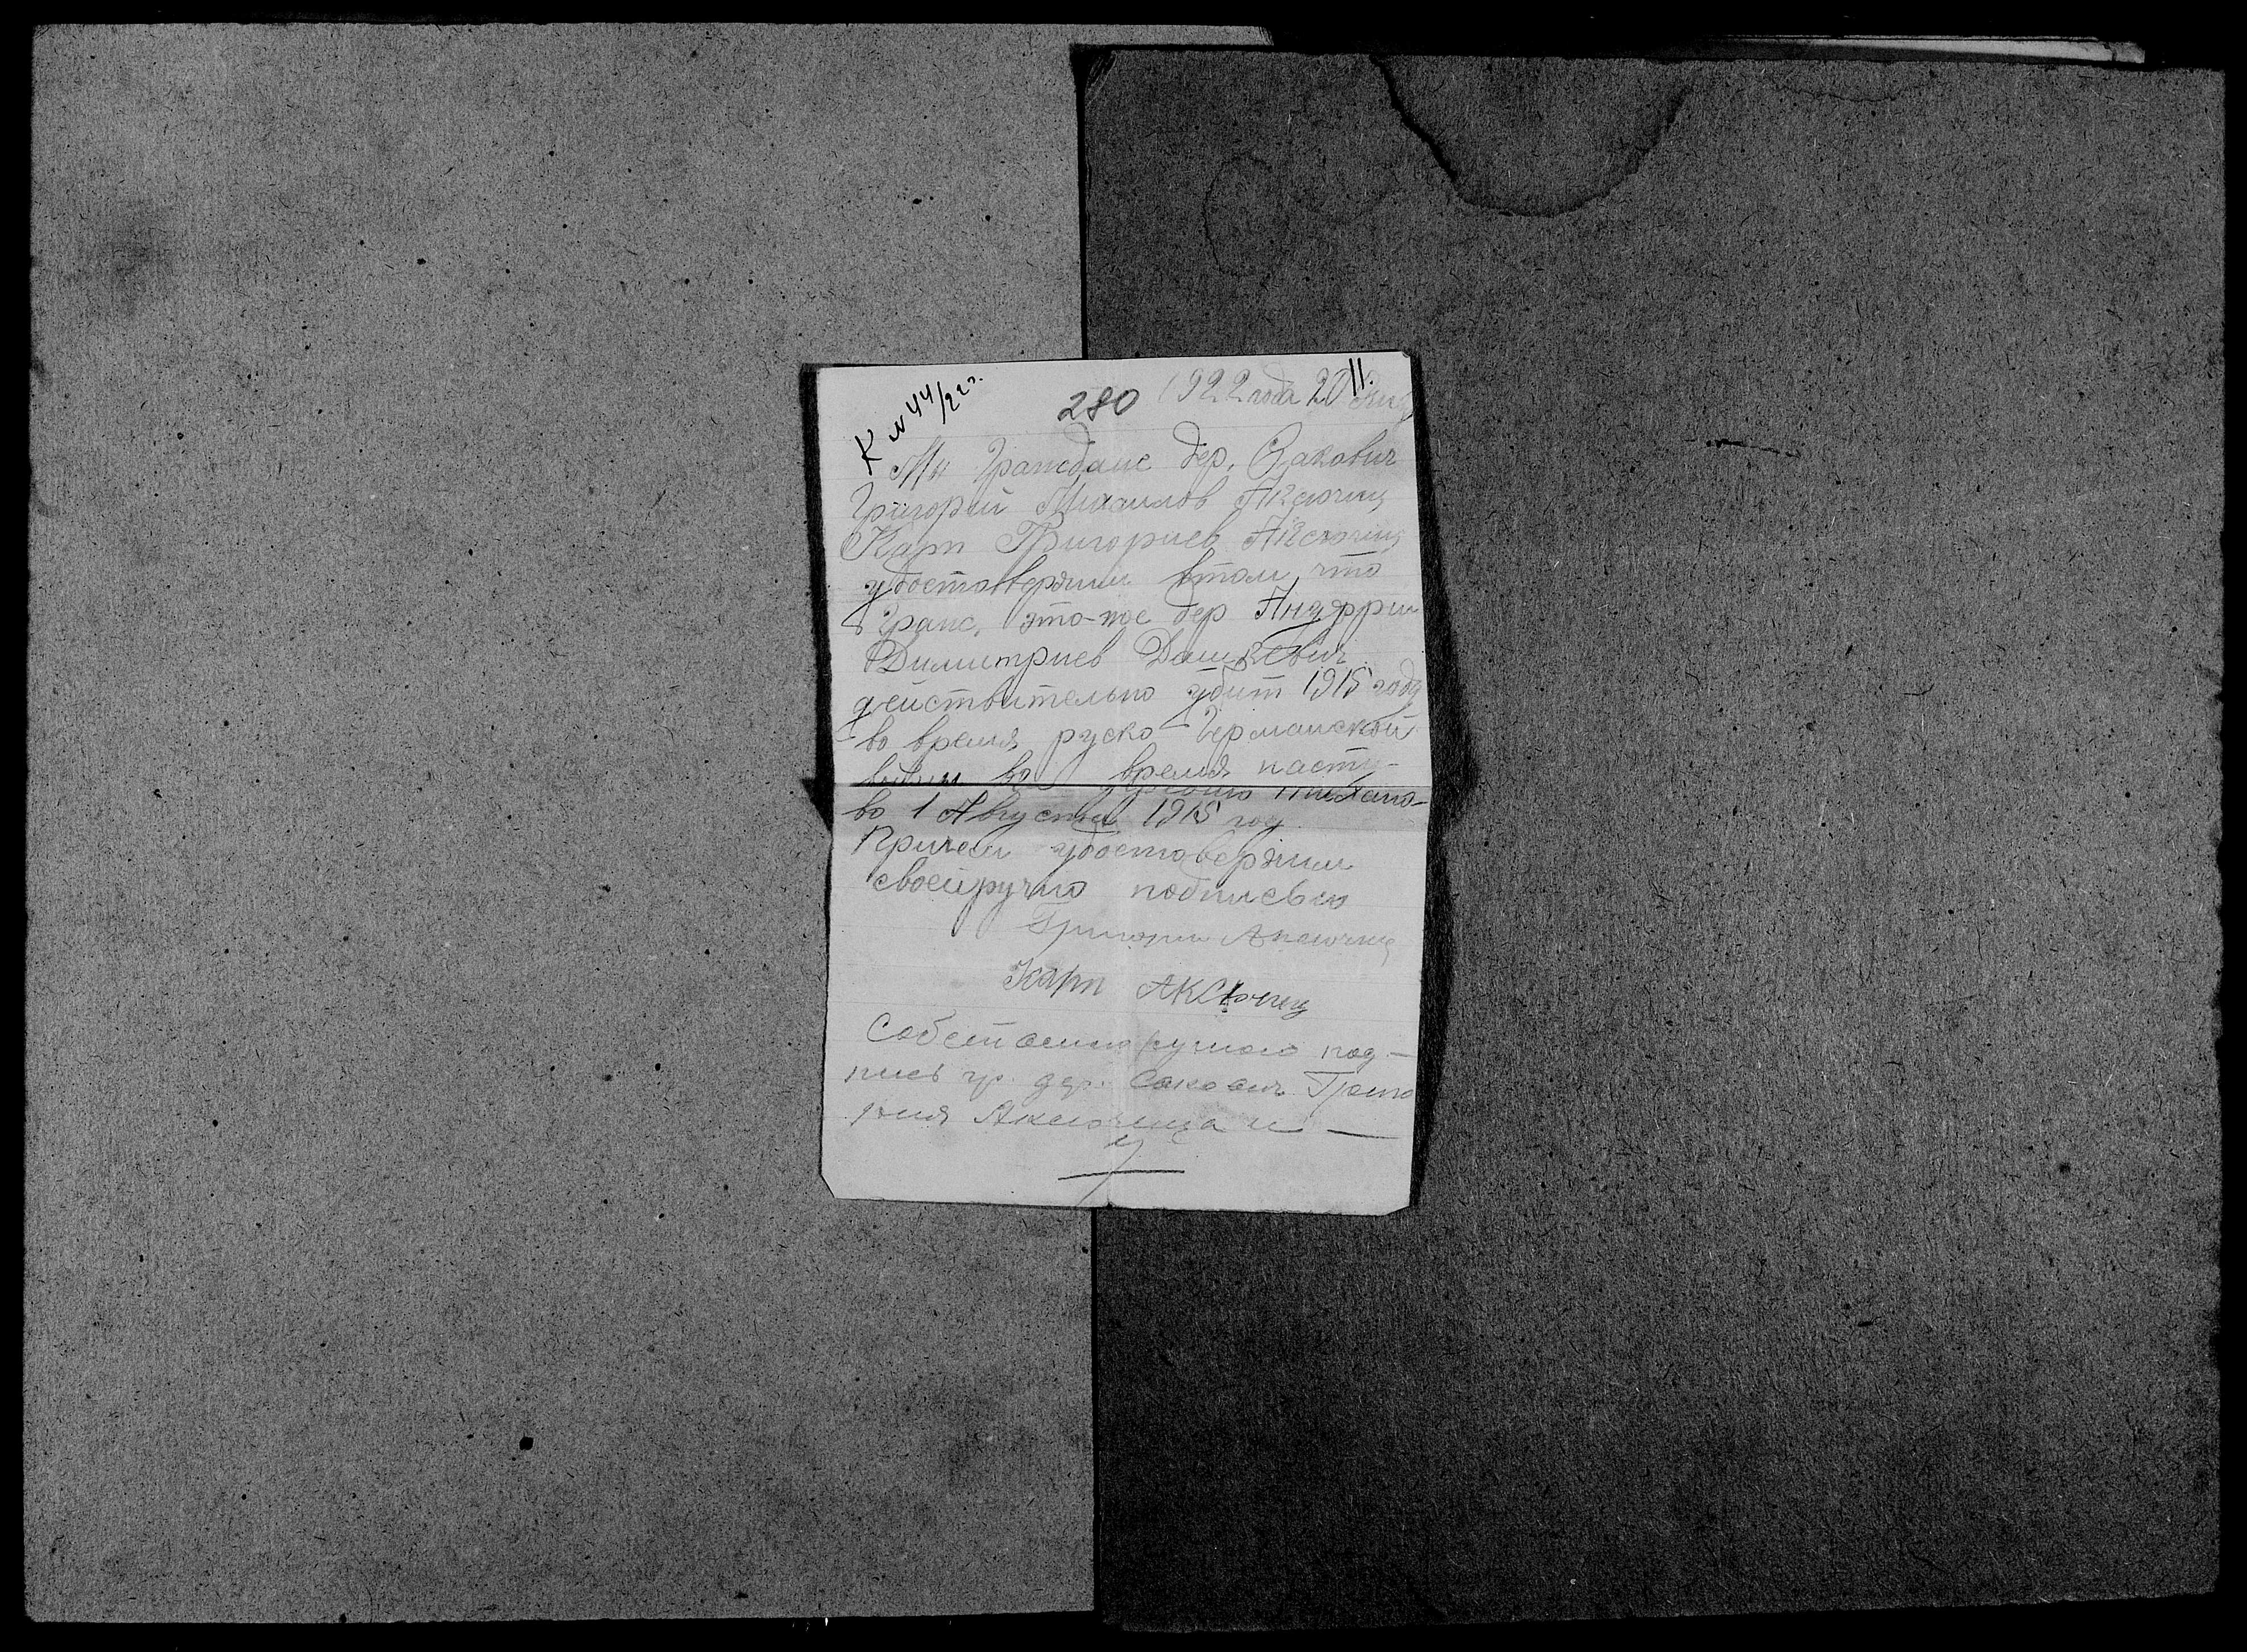 К №44/22г.
280 1922 года 20 11.
Мы Граждане дер. Сакович
Григорий Михаилов Аксючиц
Карп Григориев Аксючиц
удостоверяим втом что
Гражс. это-же дер Ануфри
Димитриев Дашкевич
действительно убит 1915 году
во время руско-Германской
войны во время насту-
во 1 Августа 1915 год
Причем удостоверяим
своейручно подписью
Григорий Аксючиц
Карп Аксючиц
Собственноручною под-
пись гр. дер. Сакович Григо
рия Аксючица и —